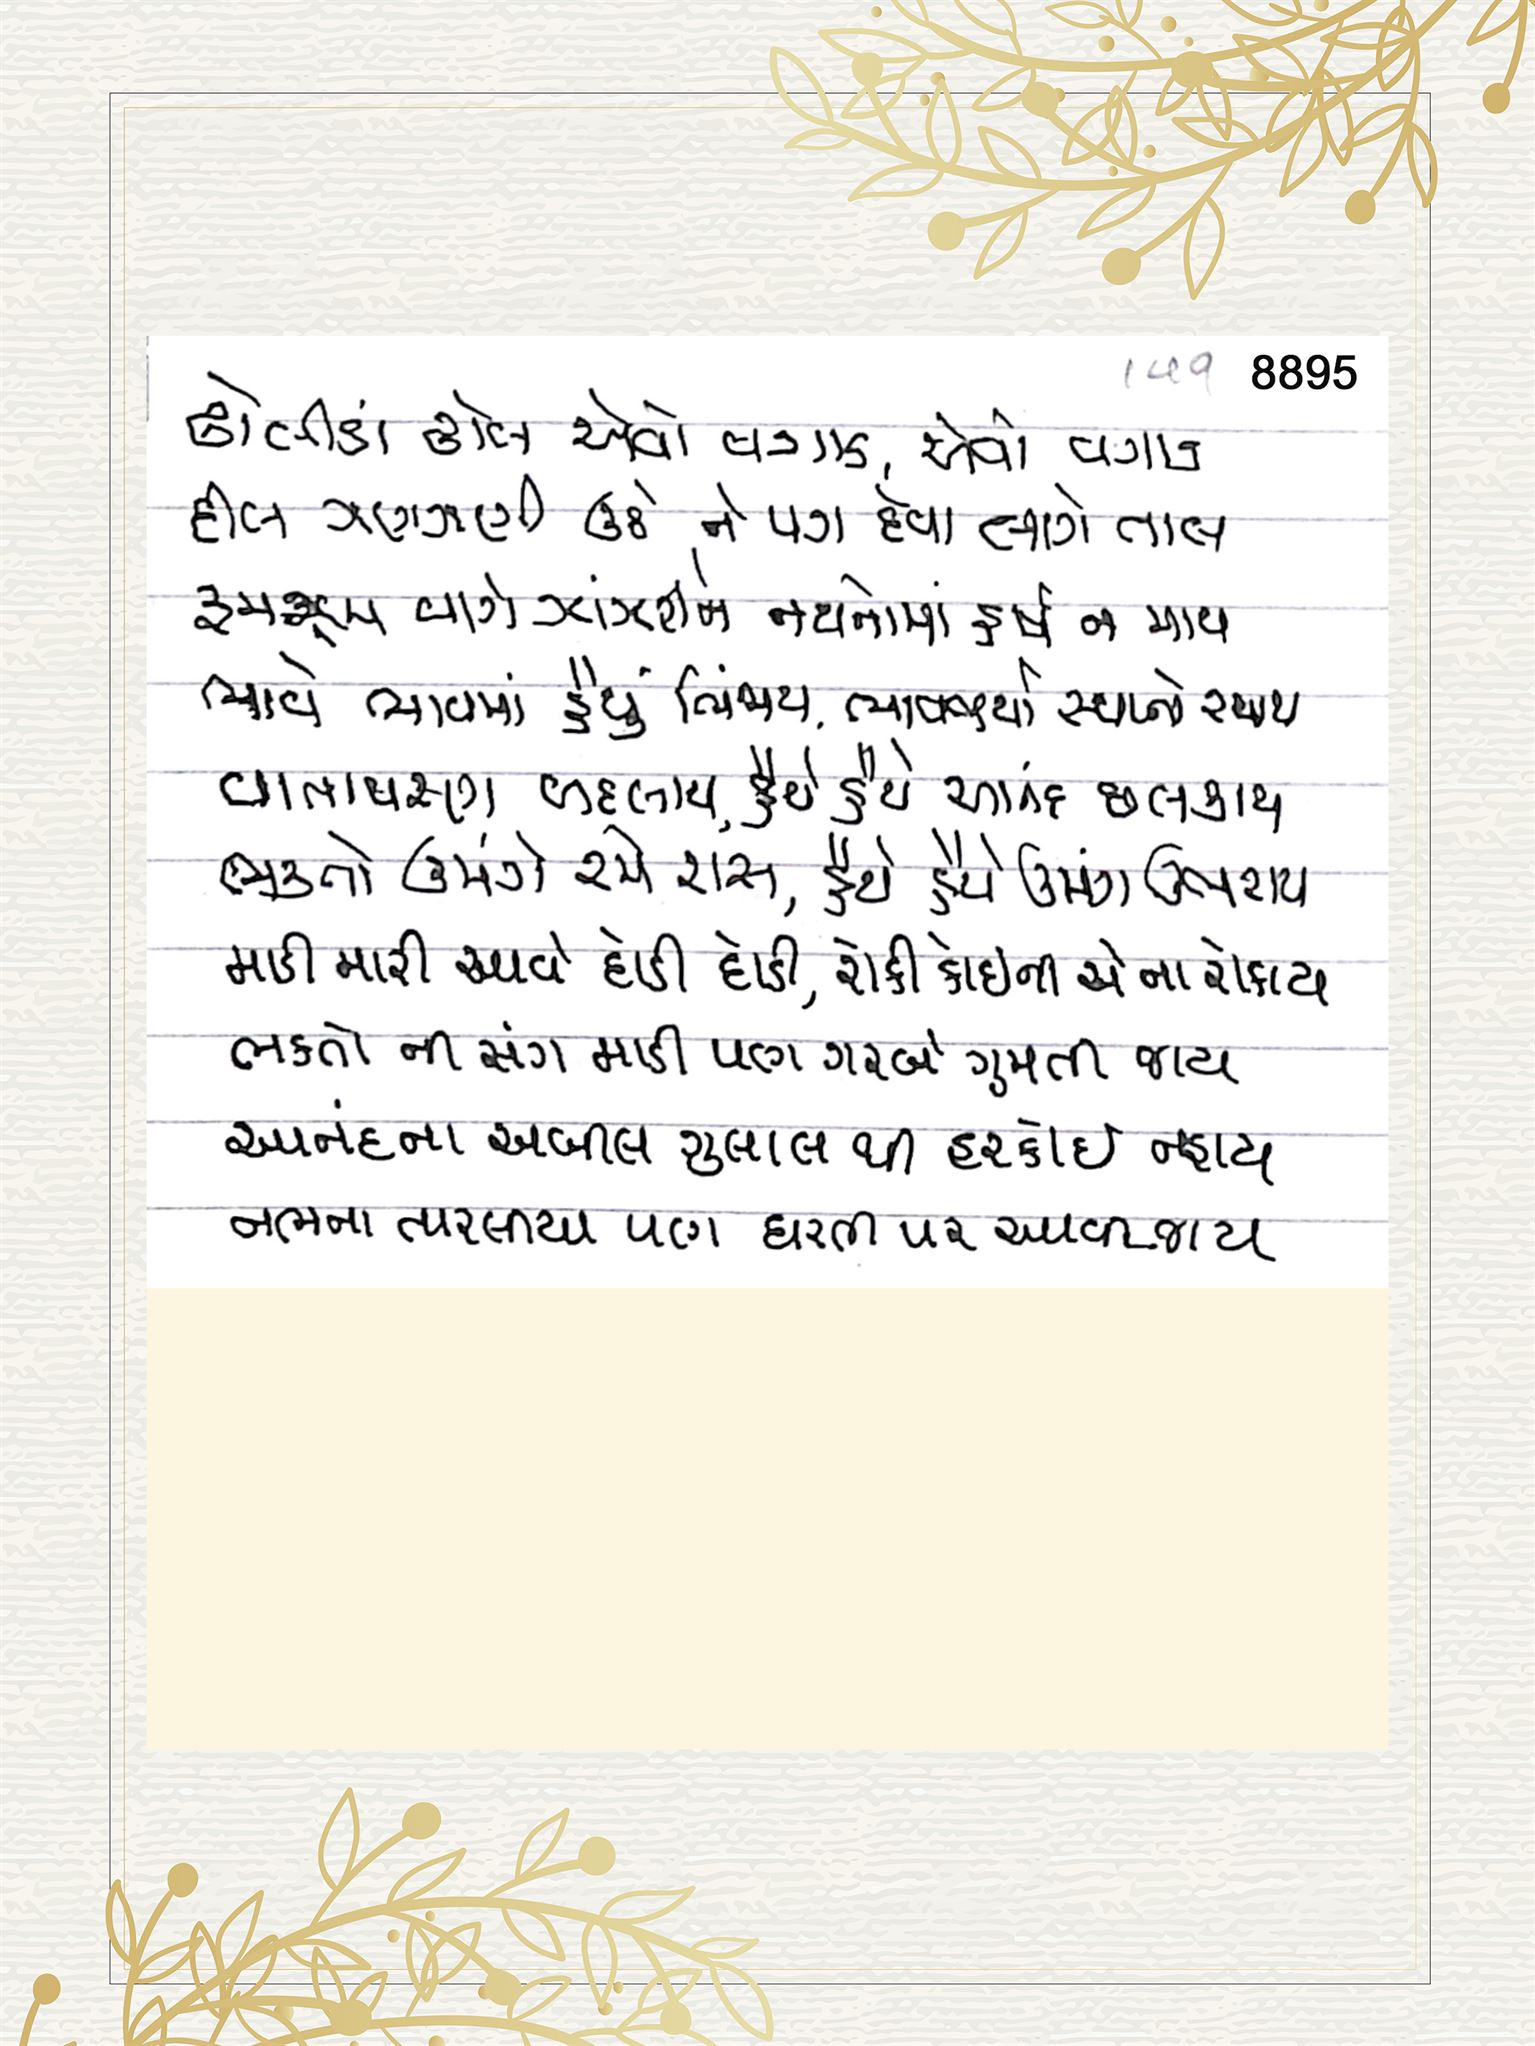 ૧૫૧ 8895
ઢોલીડાં ઢોલ એવો વગાડ, એવો વગાડ
દીલ ઝણઝણી ઉઠે, ને પગ દેવા લાગે તાલ
રૂમઝૂમ વાગે ઝાંઝરીને નયનોમાં હર્ષ ન માય
ભાવે ભાવમાં હૈયું ભિંજાય, ભાવભર્યા સ્થાનો રચાય
વાતાવરણ બદલાય, હૈયે હૈયે આનંદ છલકાય
ભક્તો ઉમંગે રમે રાસ, હૈયે હૈયે ઉમંગ ઉભરાય
માડી મારી આવે દોડી દોડી, રોકી કોઇની એ ના રોકાય
ભકતો ની સંગ માડી પણ ગરબે ગુમતી જાય
આનંદના અબીલ ગુલાલ થી હરકોઈ નહાય
નભના તારલીયા પણ ધરતી પર આવી જાય